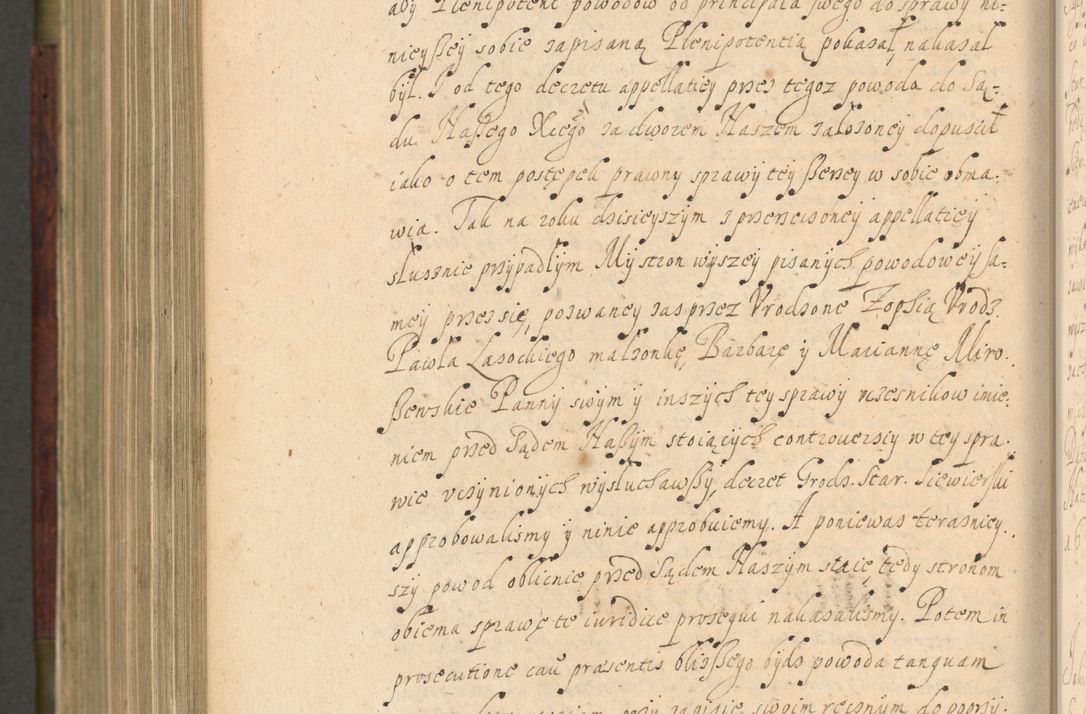 aby Plenipotent powodow od principała swego do sprawy ni-
nieyßey sobie zapisaną Plenipotentią pokazał, nakazał
był. I od tego decretu appellatiey przez tegoz powoda do Są-
du Naßego Xcego za dworem Naszem założoney dopuscił
iako o tem postępek prawny sprawy tey ßerzey w sobie obma-
wia. Tak na roku dzisieyszym z przerzeczoney appellatiey
słusznie przypadłym. My stron wyszey pisanych powodowey sa-
mey przez się, pozwaney zas przez Vrodzone Zophią Vrodz.
Pawła Lasockiego małżonkę, Barbarę y Mariannę Miro-
ßewskie Panny swym y inszych tey sprawy vczesnikow imie-
niem przed Sądem Naßym stoiących controversiy w tey spra-
wie vczynionych wysłuchawßy, decret Grodz. Star. Siewierski
approbowalismy y ninie approbuiemy. A poniewas terazniey-
szy powod oblicznie przed Sądem Naszym staie, tedy stronom
obiema sprawę te iuridice prosequi nakazalismy. Potem in
prosecutione causæ præsentis bliżßego bydz powoda tanquam
swoim ręcznym do poprzy-